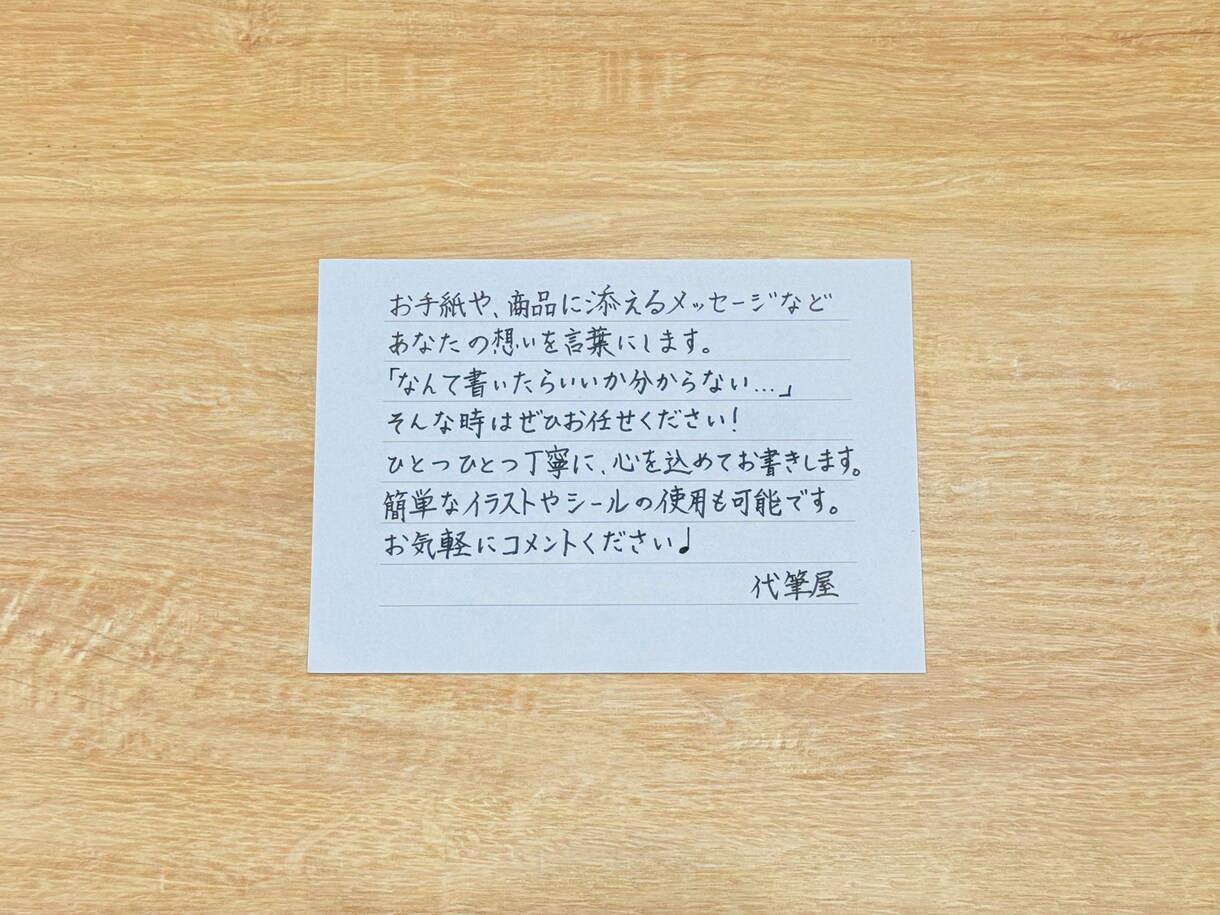 お手紙や、商品に添えるメッセージなど
あなたの想いを言葉にします。
「なんて書いたらいいか分からない…」
そんな時はぜひお任せください!
ひとつひとつ丁寧に、心を込めてお書きします。
簡単なイラストやシールの使用も可能です。
お気軽にコメントください♩
代筆屋